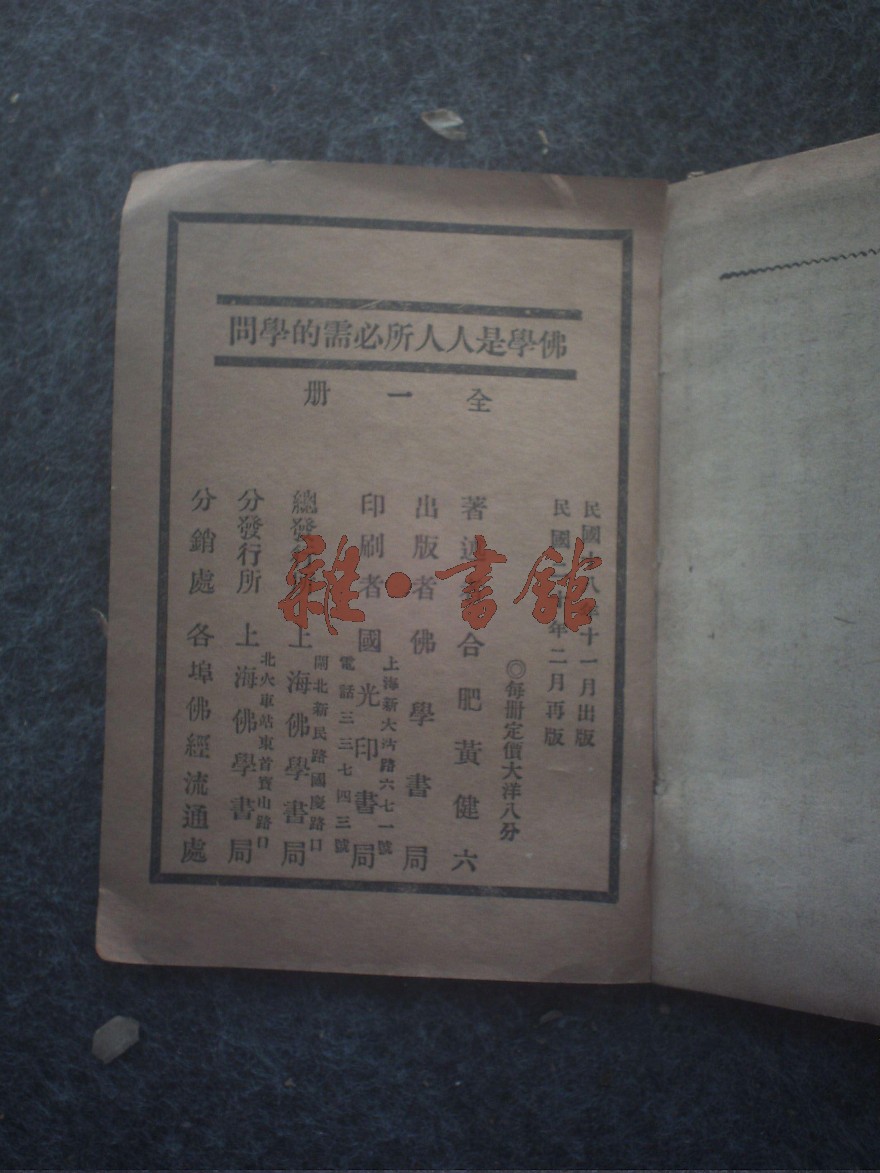 佛學是人人所必需的學問
全一册
民國十八年十一月出版
民國二十年二月再版
◎每册定價大洋八分
著述者 合肥黃健六
出版者 佛學書局
印刷者 國光印書局
上海新大沽路六七一號
電話三三七四三號
總發行所 上海佛學書局
閘北新民路國慶路口
分發行所 上海佛學書局
北火車站東首寶山路口
分銷處 各埠佛經流通處
雜·書館